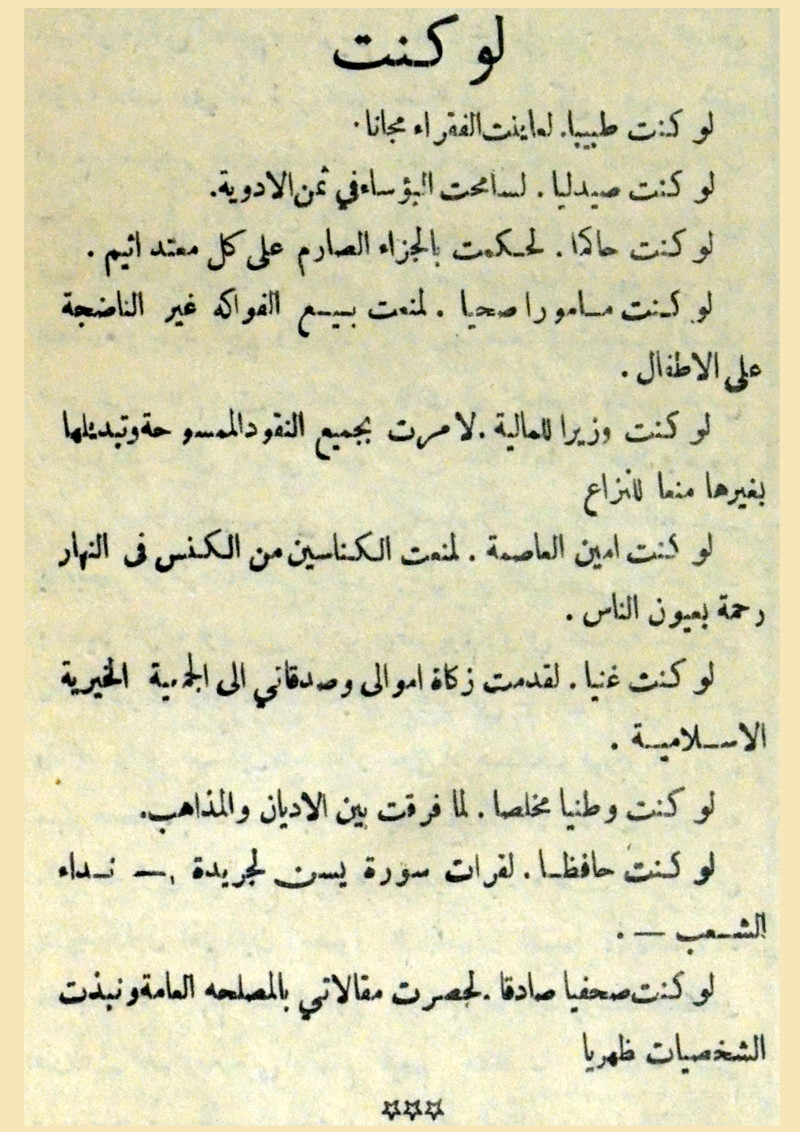 لو كنت
لو كنت طبيبا. لعاينت الفقراء مجانا.
لو كنت صيدليا. لسامحت البؤساء في ثمن الادوية.
لو كنت حاكما. لحكمت بالجزاء الصارم على كل معتد اثيم.
لو كنت مامورا صحيا. لمنعت بيع الفواكه غير الناضجة
على الاطفال.
لو كنت وزيرا للمالية. لامرت بجميع النقود الممسوحة وتبديلها
بغيرها منعا للنزاع
لو كنت امين العاصمة. لمنعت الكناسين من الكنس فى النهار
رحمة بعيون الناس.
لو كنت غنيا. لقدمت زكاة اموالى وصدقاتي الى الجمعية الخيرية
الاسلامية.
لو كنت وطنيا مخلصا. لما فرقت بين الاديان والمذاهب.
لو كنت حافظا. لقرات سورة يسن لجريدة — نداء
الشعب —.
لو كنت صحفيا صادقا. لحصرت مقالاتي بالمصلحه العامة ونبذت
الشخصيات ظهريا